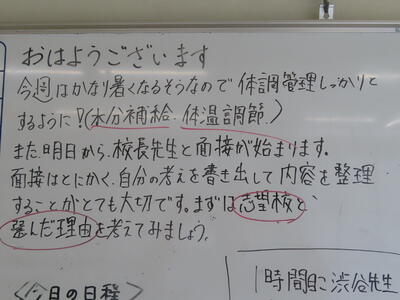 おはようございます
今週はかなり暑くなるそうなので体調管理しっかりと
するように!(水分補給、体温調節)
また、明日から、校長先生と面接が始まります。
面接はとにかく、自分の考えを書き出して内容を整理
することがとても大切です。まずは志望校と、
選んだ理由を考えてみましょう。
<今日の日程>
1時間目に渋谷先生